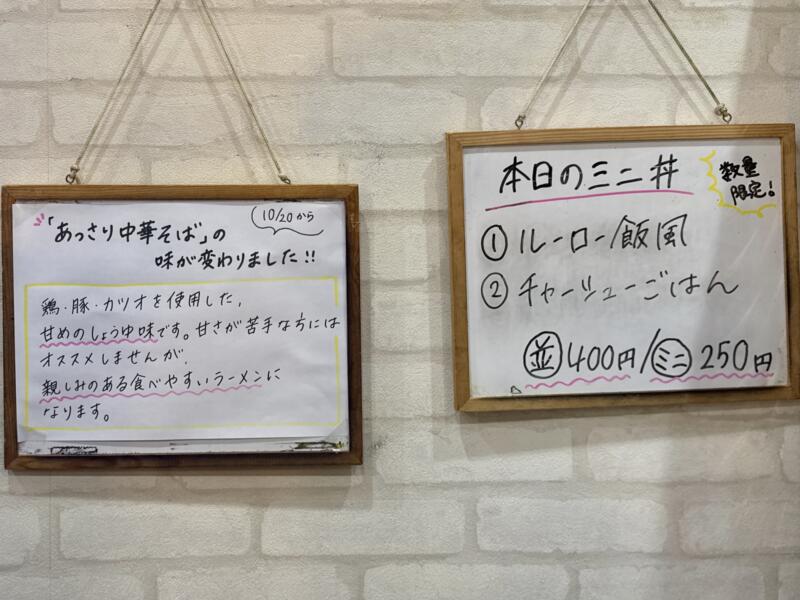 10/20から
「あっさり中華そば」の
味が変わりました!!
鶏・豚・カツオを使用した、
甘めのしょうゆ味です。甘さが苦手な方には
オススメしませんが、
親しみのある食べやすいラーメンに
なります。
本日のミニ丼
数量
限定!
① ルーロー飯風
② チャーシューごはん
並 400円/ミニ 250円